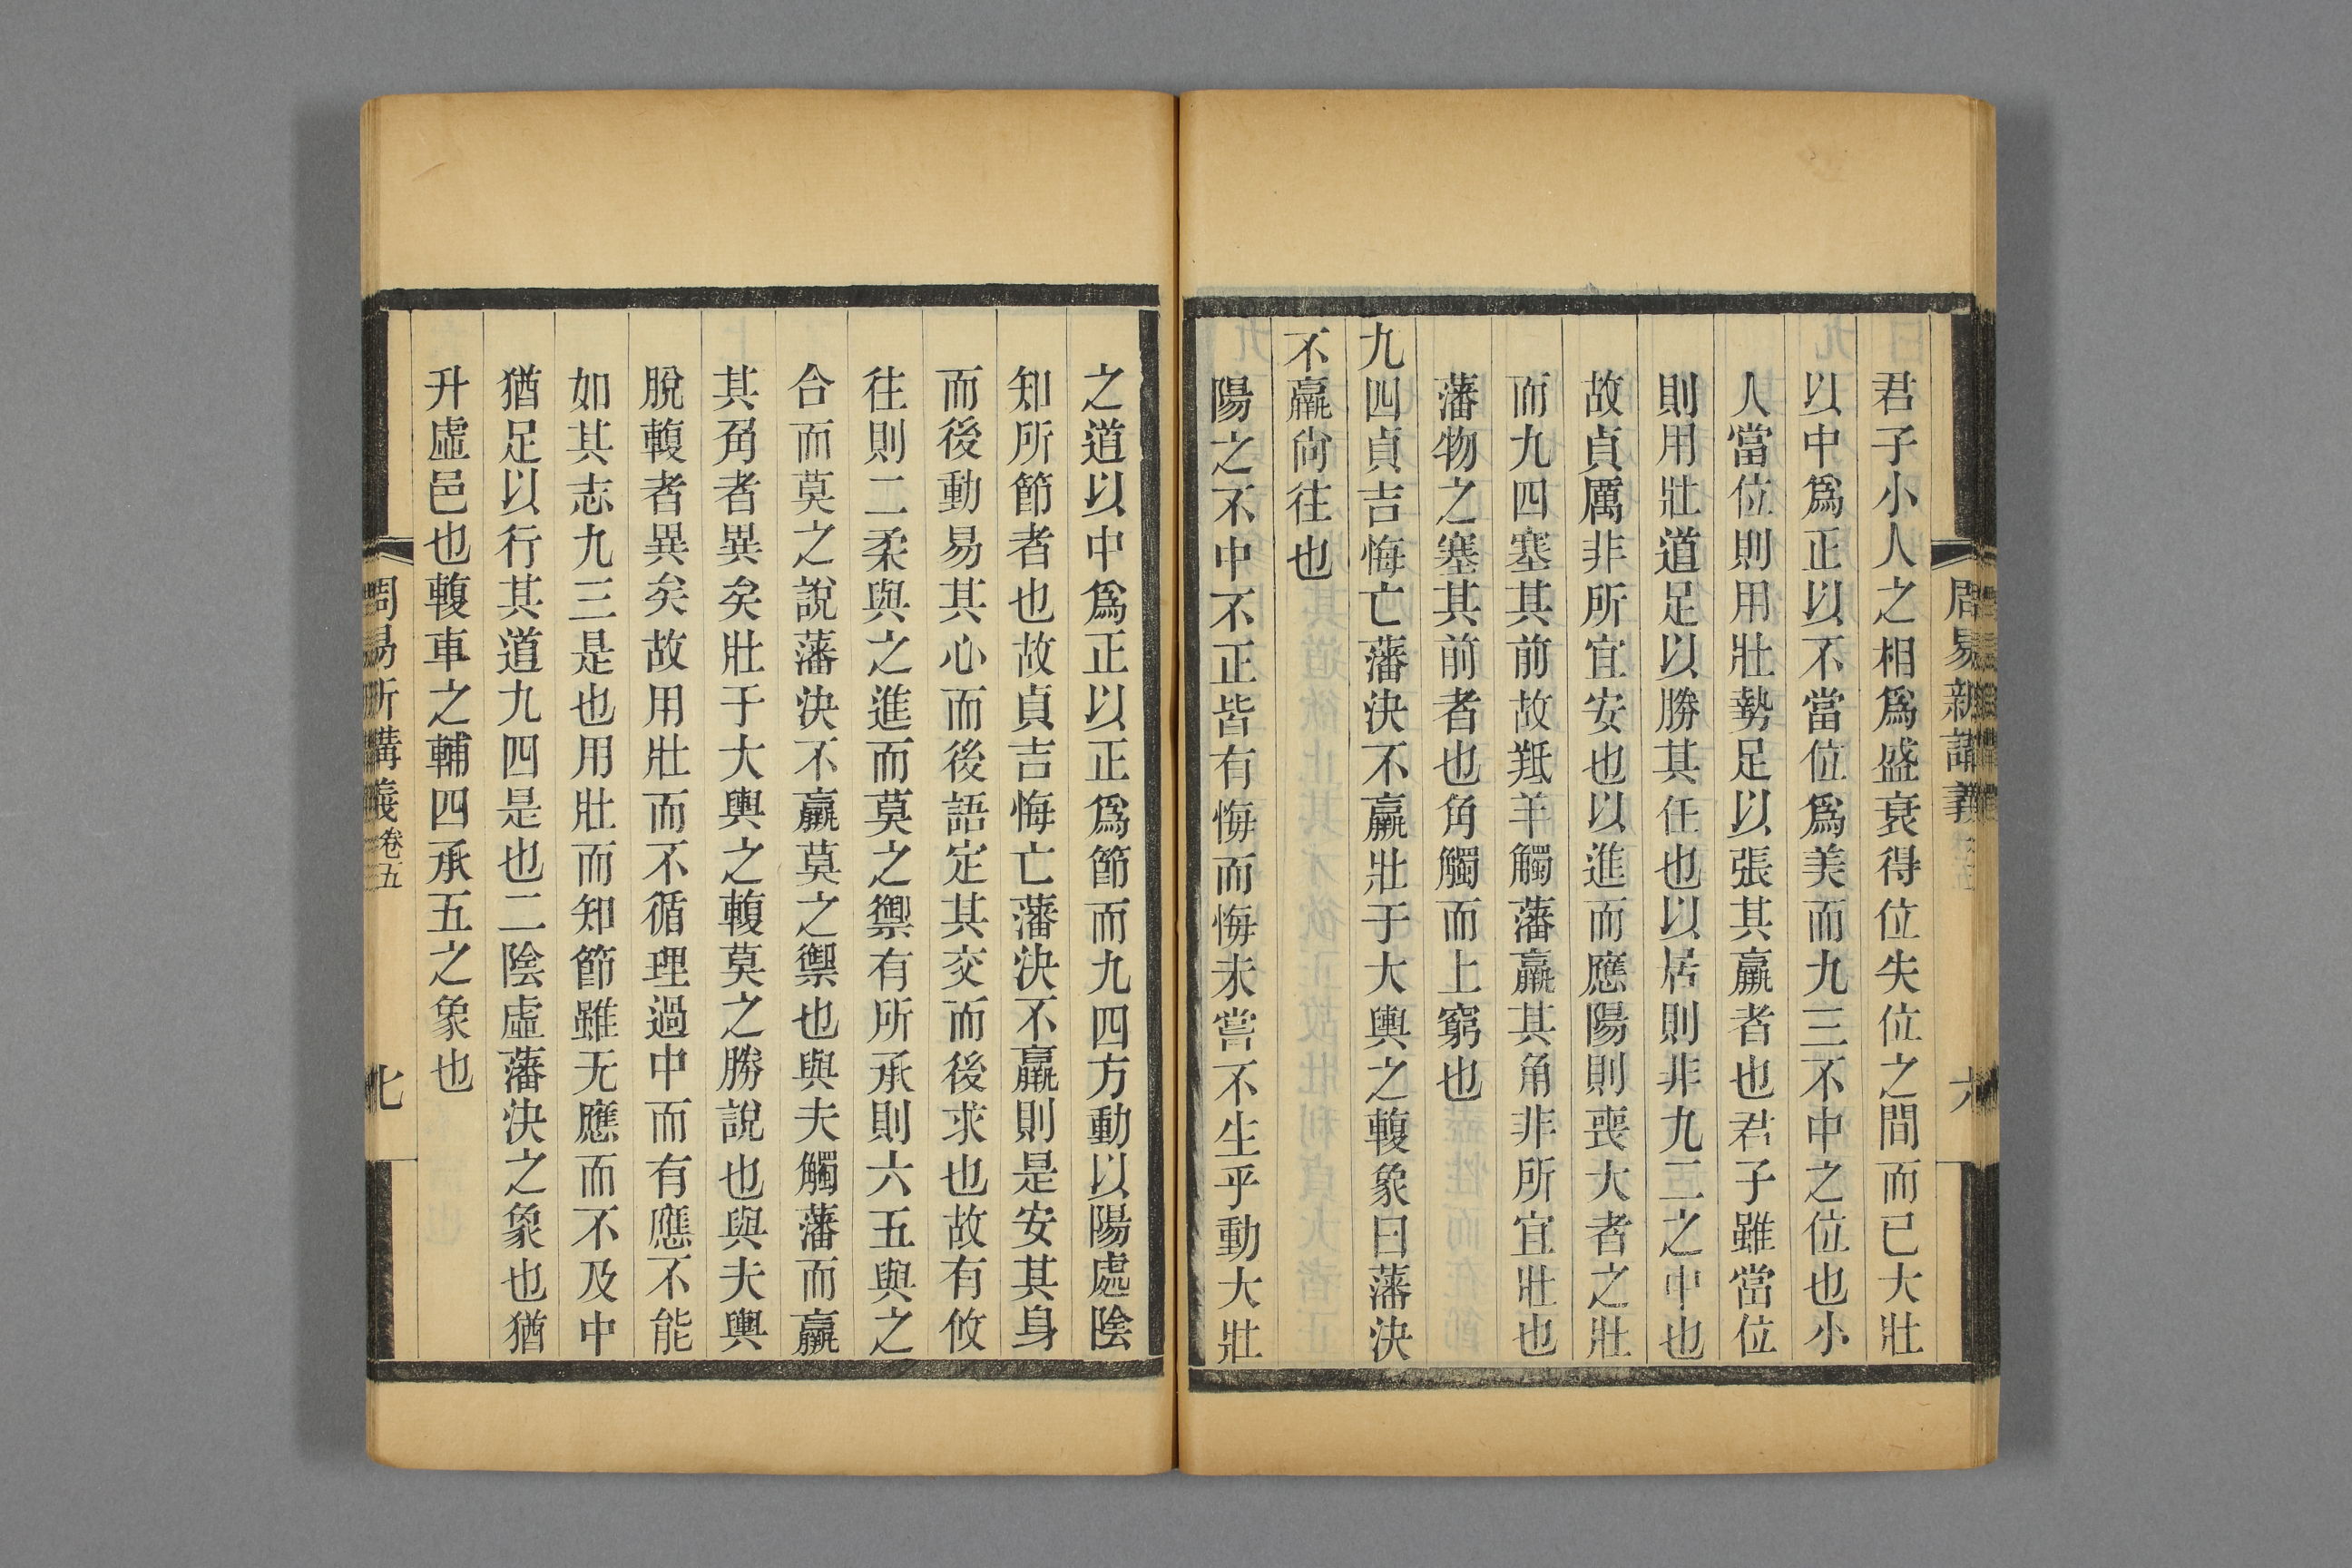 周易新講義
六
君子小人之相爲盛衰得位失位之間而已大壯
以中爲正以不當位爲美而九三不中之位也小
人當位則用壯勢足以張其羸者也君子雖當位
則用壯道足以勝其任也以居則非九二之中也
故貞厲非所宜安也以進而應陽則喪大者之壯
而九四塞其前故羝羊觸藩羸其角非所宜壯也
藩物之塞其前者也角觸而上窮也
九四貞吉悔亡藩決不羸壯于大輿之輹象曰藩決
不羸尙往也
陽之不中不正皆有悔而悔未嘗不生乎動大壯
之道以中爲正以正爲節而九四方動以陽處陰
知所節者也故貞吉悔亡藩決不羸則是安其身
而後動易其心而後語定其交而後求也故有攸
往則二柔與之進而莫之禦有所承則六五與之
合而莫之說藩決不羸莫之禦也與夫觸藩而羸
其角者異矣壯于大輿之輹莫之勝說也與夫輿
脫輹者異矣故用壯而不循理過中而有應不能
如其志九三是也用壯而知節雖无應而不及中
猶足以行其道九四是也二陰虛藩決之象也猶
升虛邑也輹車之輔四承五之象也
周易新講義 卷五
七